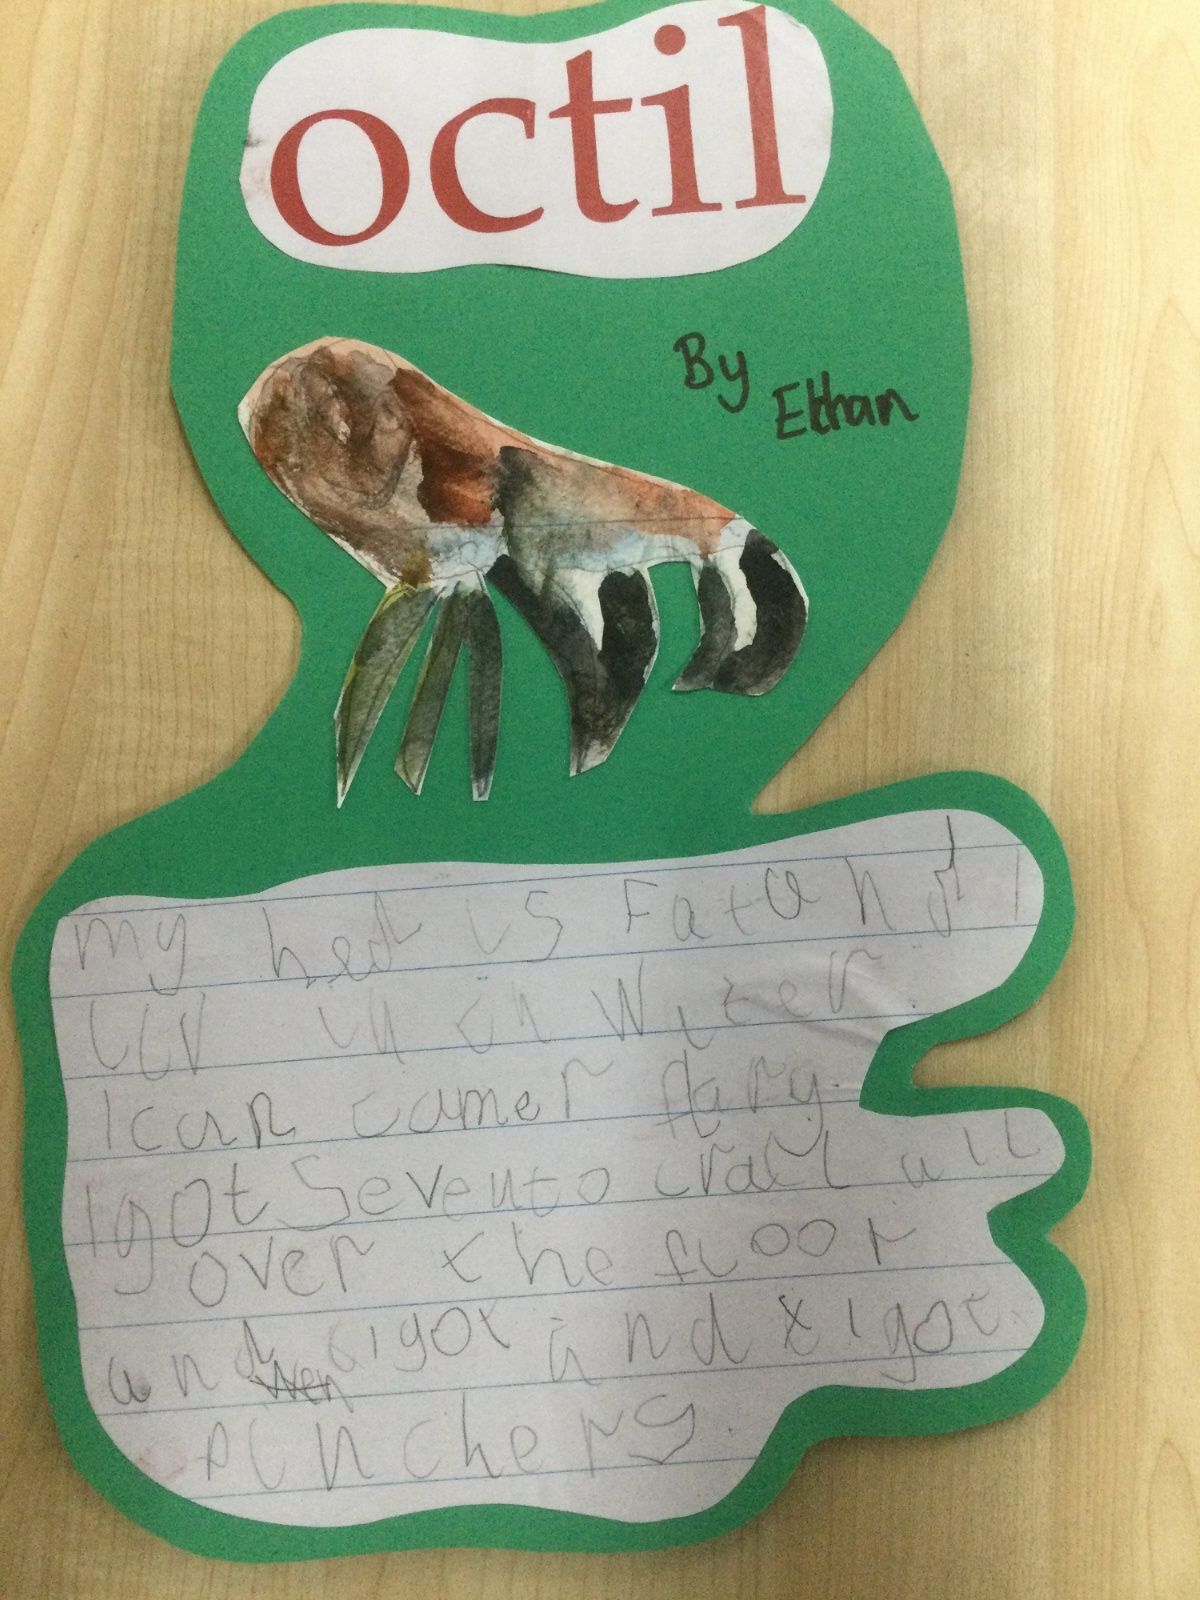 octil
By
Ethan
my hed is Fat and I
liv in in Water.
I can camer flarg.
I got Seven to crall all
over the floor
and I got and x I got
Pinchers.